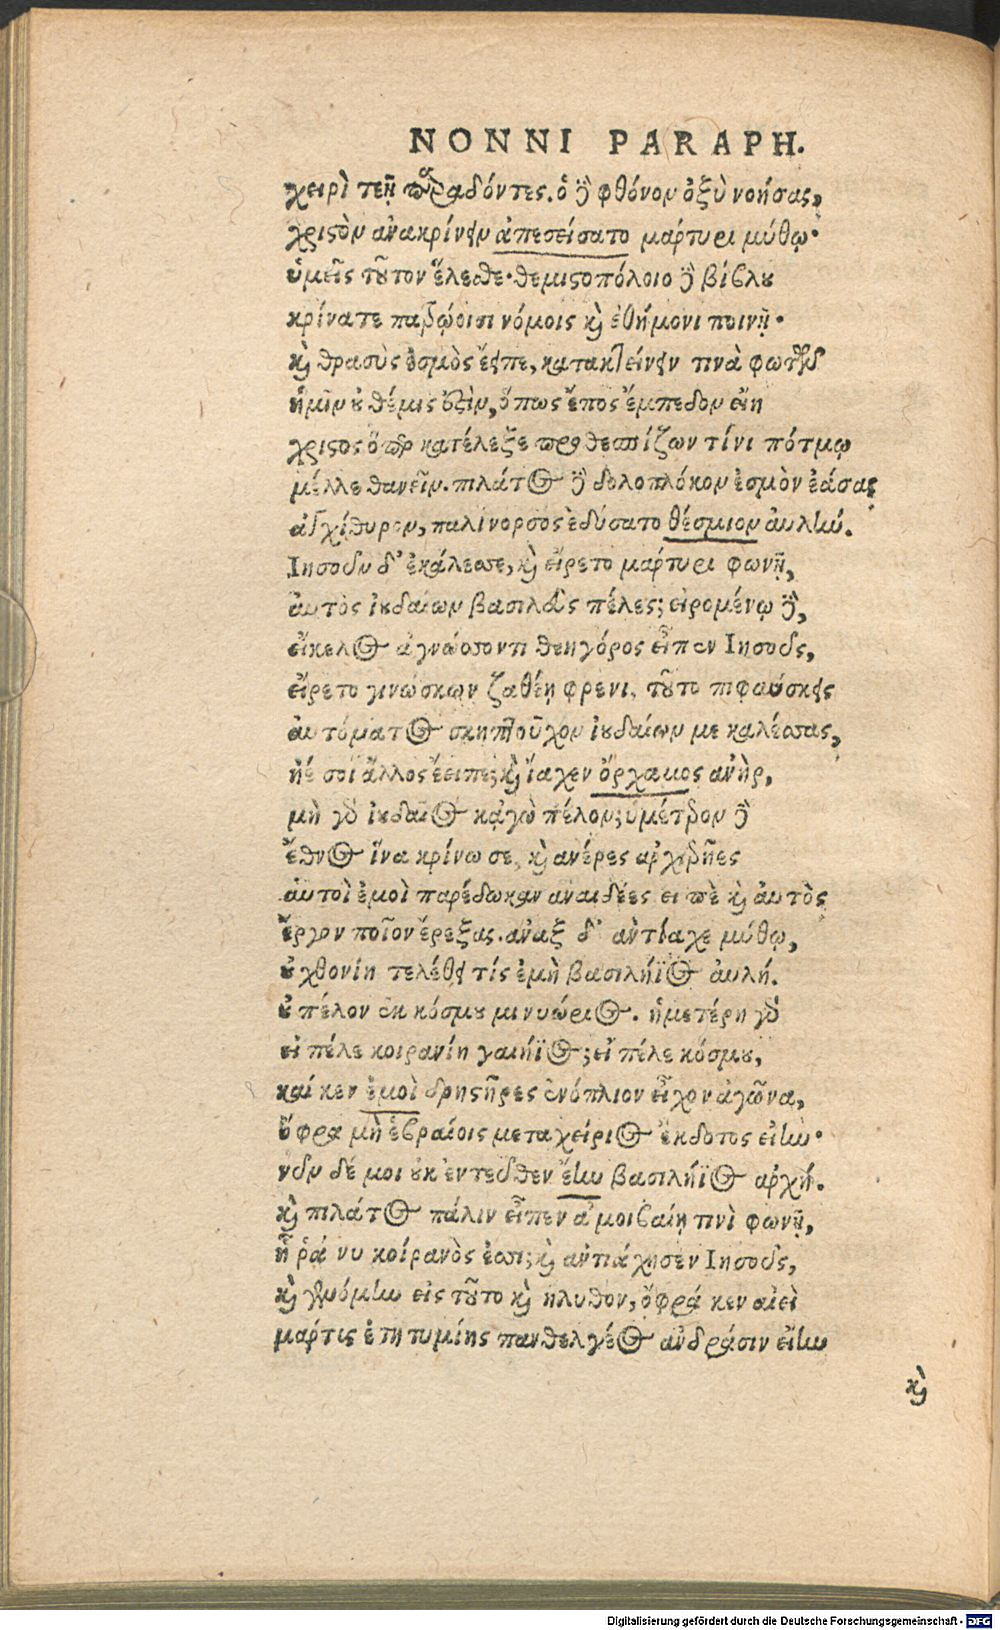 NONNI PARAPH.
χειρὶ τεῇ παραδόντες. ὁ δὲ φθόνον ὀξὺ νοήσας,
χριστὸν ἀνακρίνειν ἀπεσείσατο μάρτυρι μύθῳ·
ὑμεῖς τοῦτον ἕλεσθε· θεμιστοπόλοιο δὲ βίβλου
κρίνατε πατρῴοισι νόμοις καὶ ἐθήμονι ποινῇ·
καὶ θρασὺς ἐσμὸς ἔειπε, κατακτείνειν τινὰ φωτῶν
ἡμῖν οὐ θέμις ἐστὶν, ὅπως ἔπος ἔμπεδον εἴη
χριστος ὅπερ κατέλεξε προθεσπίζων τίνι πότμῳ
μέλλε θανεῖν. πιλάτος δὲ δολοπλόκον ἐσμὸν ἐάσας
ἀγχίθυρον, παλίνορσος ἐδύσατο θέσμιον αὐλήν.
Ιησοῦν δ' ἐκάλεσσε, καὶ εἴρετο μάρτυρι φωνῇ,
αὐτὸς ἰουδαίων βασιλεὺς πέλες; εἰρομένῳ δὲ,
εἴκελος ἀγνώσσοντι θεηγόρος εἶπεν Ιησοῦς,
εἴρετο γινώσκων ζαθέῃ φρενι, τοῦτο πιφαύσκεις
αὐτόματος σκηπτοῦχον ἰουδαίων με καλέσσας,
ἠέ σοι ἄλλος ἔειπε; καὶ ἴαχεν ὄρχαμος ἀνὴρ,
μὴ γὰρ ἰουδαῖος κᾀγὼ πέλον; ὑμέτερον δὲ
ἔθνος ἵνα κρίνω σε, καὶ ἀνέρες ἀρχιερῆες
αὐτοὶ ἐμοὶ παρέδωκαν ἀναιδέες· εἰπὲ καὶ αὐτὸς
ἔργον ποῖον ἔρεξας. ἄναξ δ' ἀντίαχε μύθῳ,
οὐ χθονίη τελέθει τίς ἐμὴ βασιλήϊος αὐλή.
οὐ πέλον ἐκ κόσμου μινυώριος. ἡμετέρη γὰρ
εἰ πέλε κοιρανίη γαιήϊος; εἰ πέλε κόσμου,
καί κεν ἐμοὶ δρηστῆρες ἐνόπλιον εἶχον ἀγῶνα,
ὄφρα μὴ ἑβραίοις μεταχείριος ἔκδοτος εἴην·
νῦν δέ μοι οὐκ ἐντεῦθεν ἔην βασιλήϊος ἀρχή.
καὶ πιλάτος πάλιν εἶπεν ἀμοιβαίῃ τινὶ φωνῇ,
ἦ ῥά νυ κοίρανὸς ἐσσι; καὶ ἀντιάχησεν Ιησοῦς,
καὶ γενόμην εἰς τοῦτο καὶ ἤλυθον, ὄφρά κεν αἰεὶ
μάρτις ἐτητυμίης πανθελγέος ἀνδράσιν εἴην
καὶ
Digitalisierung gefördert durch die Deutsche Forschungsgemeinschaft - DFG